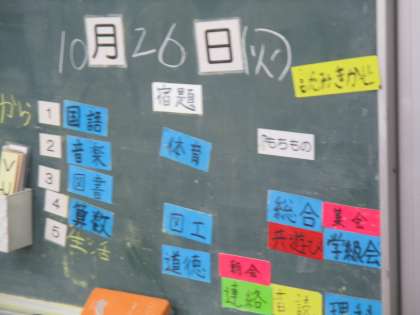 10月26日(火)
よみきかせ
から
宿題
1 国語
2 音楽
3 図書
4 算数
5 生活
体育
もちもの
図工
道徳
総合
集会
共遊び
学級会
朝会
連絡
理科